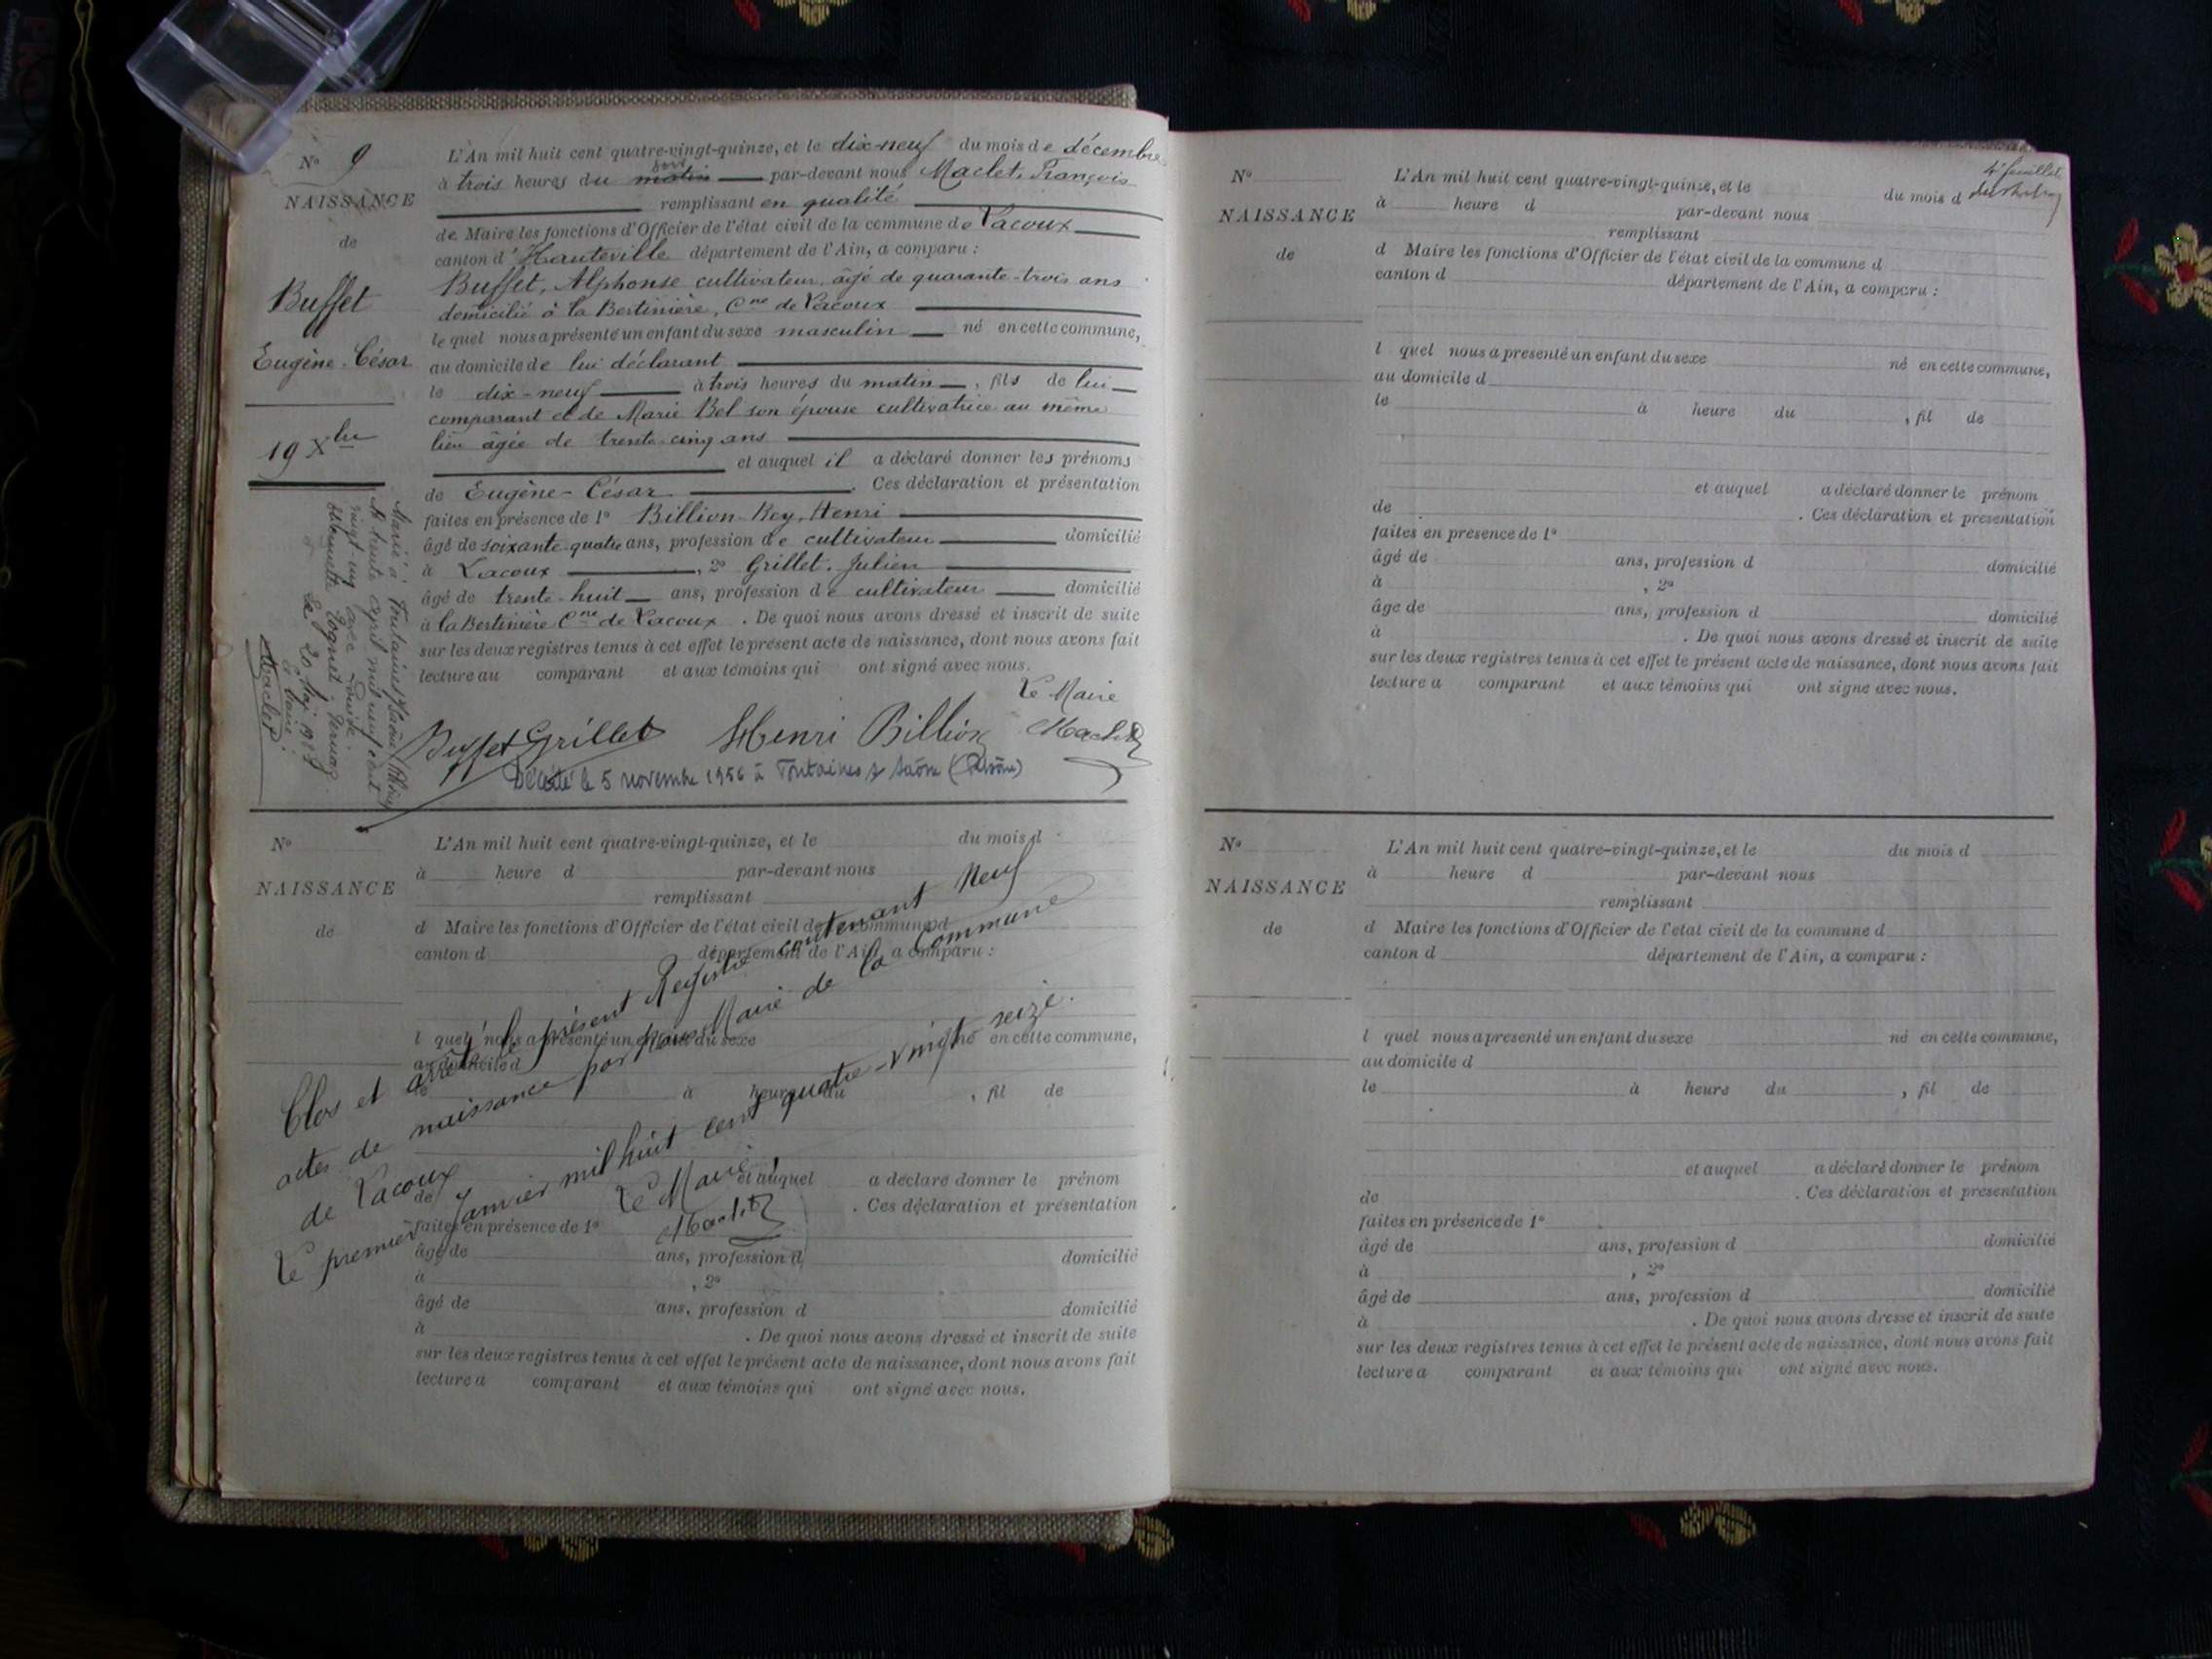 N° 9
NAISSANCE
de
Buffet
Eugène-César
19 Xbre
L'An mil huit cent quatre-vingt-quinze, et le dix-neuf du mois de décembre
à trois heures du matin soir par-devant nous Maclet, François
remplissant en qualité
de Maire les fonctions d'Officier de l'état civil de la commune de Lacoux
canton d'Hauteville département de l'Ain, a comparu :
Buffet, Alphonse cultivateur, âgé de quarante-trois ans
domicilié à la Bertinière, Cne de Lacoux
le quel nous a présenté un enfant du sexe masculin né en cette commune,
au domicile de lui déclarant
le dix-neuf à trois heures du matin, fils de lui
comparant et de Marie Bel son épouse cultivatrice au même
lieu âgée de trente-cinq ans
et auquel il a déclaré donner les prénoms
de Eugène-César. Ces déclaration et présentation
faites en présence de 1° Billion-Rey, Henri
âgé de soixante-quatre ans, profession de cultivateur domicilié
à Lacoux, 2° Grillet, Julien
âgé de trente-huit ans, profession de cultivateur domicilié
à la Bertinière Cne de Lacoux. De quoi nous avons dressé et inscrit de suite
sur les deux registres tenus à cet effet le présent acte de naissance, dont nous avons fait
lecture au comparant et aux témoins qui ont signé avec nous.
Le Maire
Buffet Grillet Henri Billion Maclet
Décédé le 5 novembre 1956 à Fontaines s/ Saône (Rhône)
Marié à Fontaines s/Saône (Rhône)
le trente avril mil neuf cent
vingt-un avec Louise
Le 20 Mai
Le Maire :
Maclet
N°
NAISSANCE
de
L'An mil huit cent quatre-vingt-quinze, et le du mois d
à heure d par-devant nous
remplissant
d Maire les fonctions d'Officier de l'état civil de la commune d
canton d département de l'Ain, a comparu :
l quel nous a présenté un enfant du sexe né en cette commune,
au domicile d
le à heure du , fil de
et auquel a déclaré donner le prénom
de . Ces déclaration et présentation
faites en présence de 1°
âgé de ans, profession d domicilié
à , 2°
âgé de ans, profession d domicilié
à . De quoi nous avons dressé et inscrit de suite
sur les deux registres tenus à cet effet le présent acte de naissance, dont nous avons fait
lecture a comparant et aux témoins qui ont signé avec nous.
Clos et arrêté le présent Registre contenant Neuf
actes de naissance par Nous Maire de la Commune
de Lacoux
Le premier Janvier mil huit cent quatre-vingt seize.
Le Maire
Maclet
4e feuillet
N°
NAISSANCE
de
L'An mil huit cent quatre-vingt-quinze, et le du mois d
à heure d par-devant nous
remplissant
d Maire les fonctions d'Officier de l'état civil de la commune d
canton d département de l'Ain, a comparu :
l quel nous a présenté un enfant du sexe né en cette commune,
au domicile d
le à heure du , fil de
et auquel a déclaré donner le prénom
de . Ces déclaration et présentation
faites en présence de 1°
âgé de ans, profession d domicilié
à , 2°
âgé de ans, profession d domicilié
à . De quoi nous avons dressé et inscrit de suite
sur les deux registres tenus à cet effet le présent acte de naissance, dont nous avons fait
lecture a comparant et aux témoins qui ont signé avec nous.
N°
NAISSANCE
de
L'An mil huit cent quatre-vingt-quinze, et le du mois d
à heure d par-devant nous
remplissant
d Maire les fonctions d'Officier de l'état civil de la commune d
canton d département de l'Ain, a comparu :
l quel nous a présenté un enfant du sexe né en cette commune,
au domicile d
le à heure du , fil de
et auquel a déclaré donner le prénom
de . Ces déclaration et présentation
faites en présence de 1°
âgé de ans, profession d domicilié
à , 2°
âgé de ans, profession d domicilié
à . De quoi nous avons dressé et inscrit de suite
sur les deux registres tenus à cet effet le présent acte de naissance, dont nous avons fait
lecture a comparant et aux témoins qui ont signé avec nous.